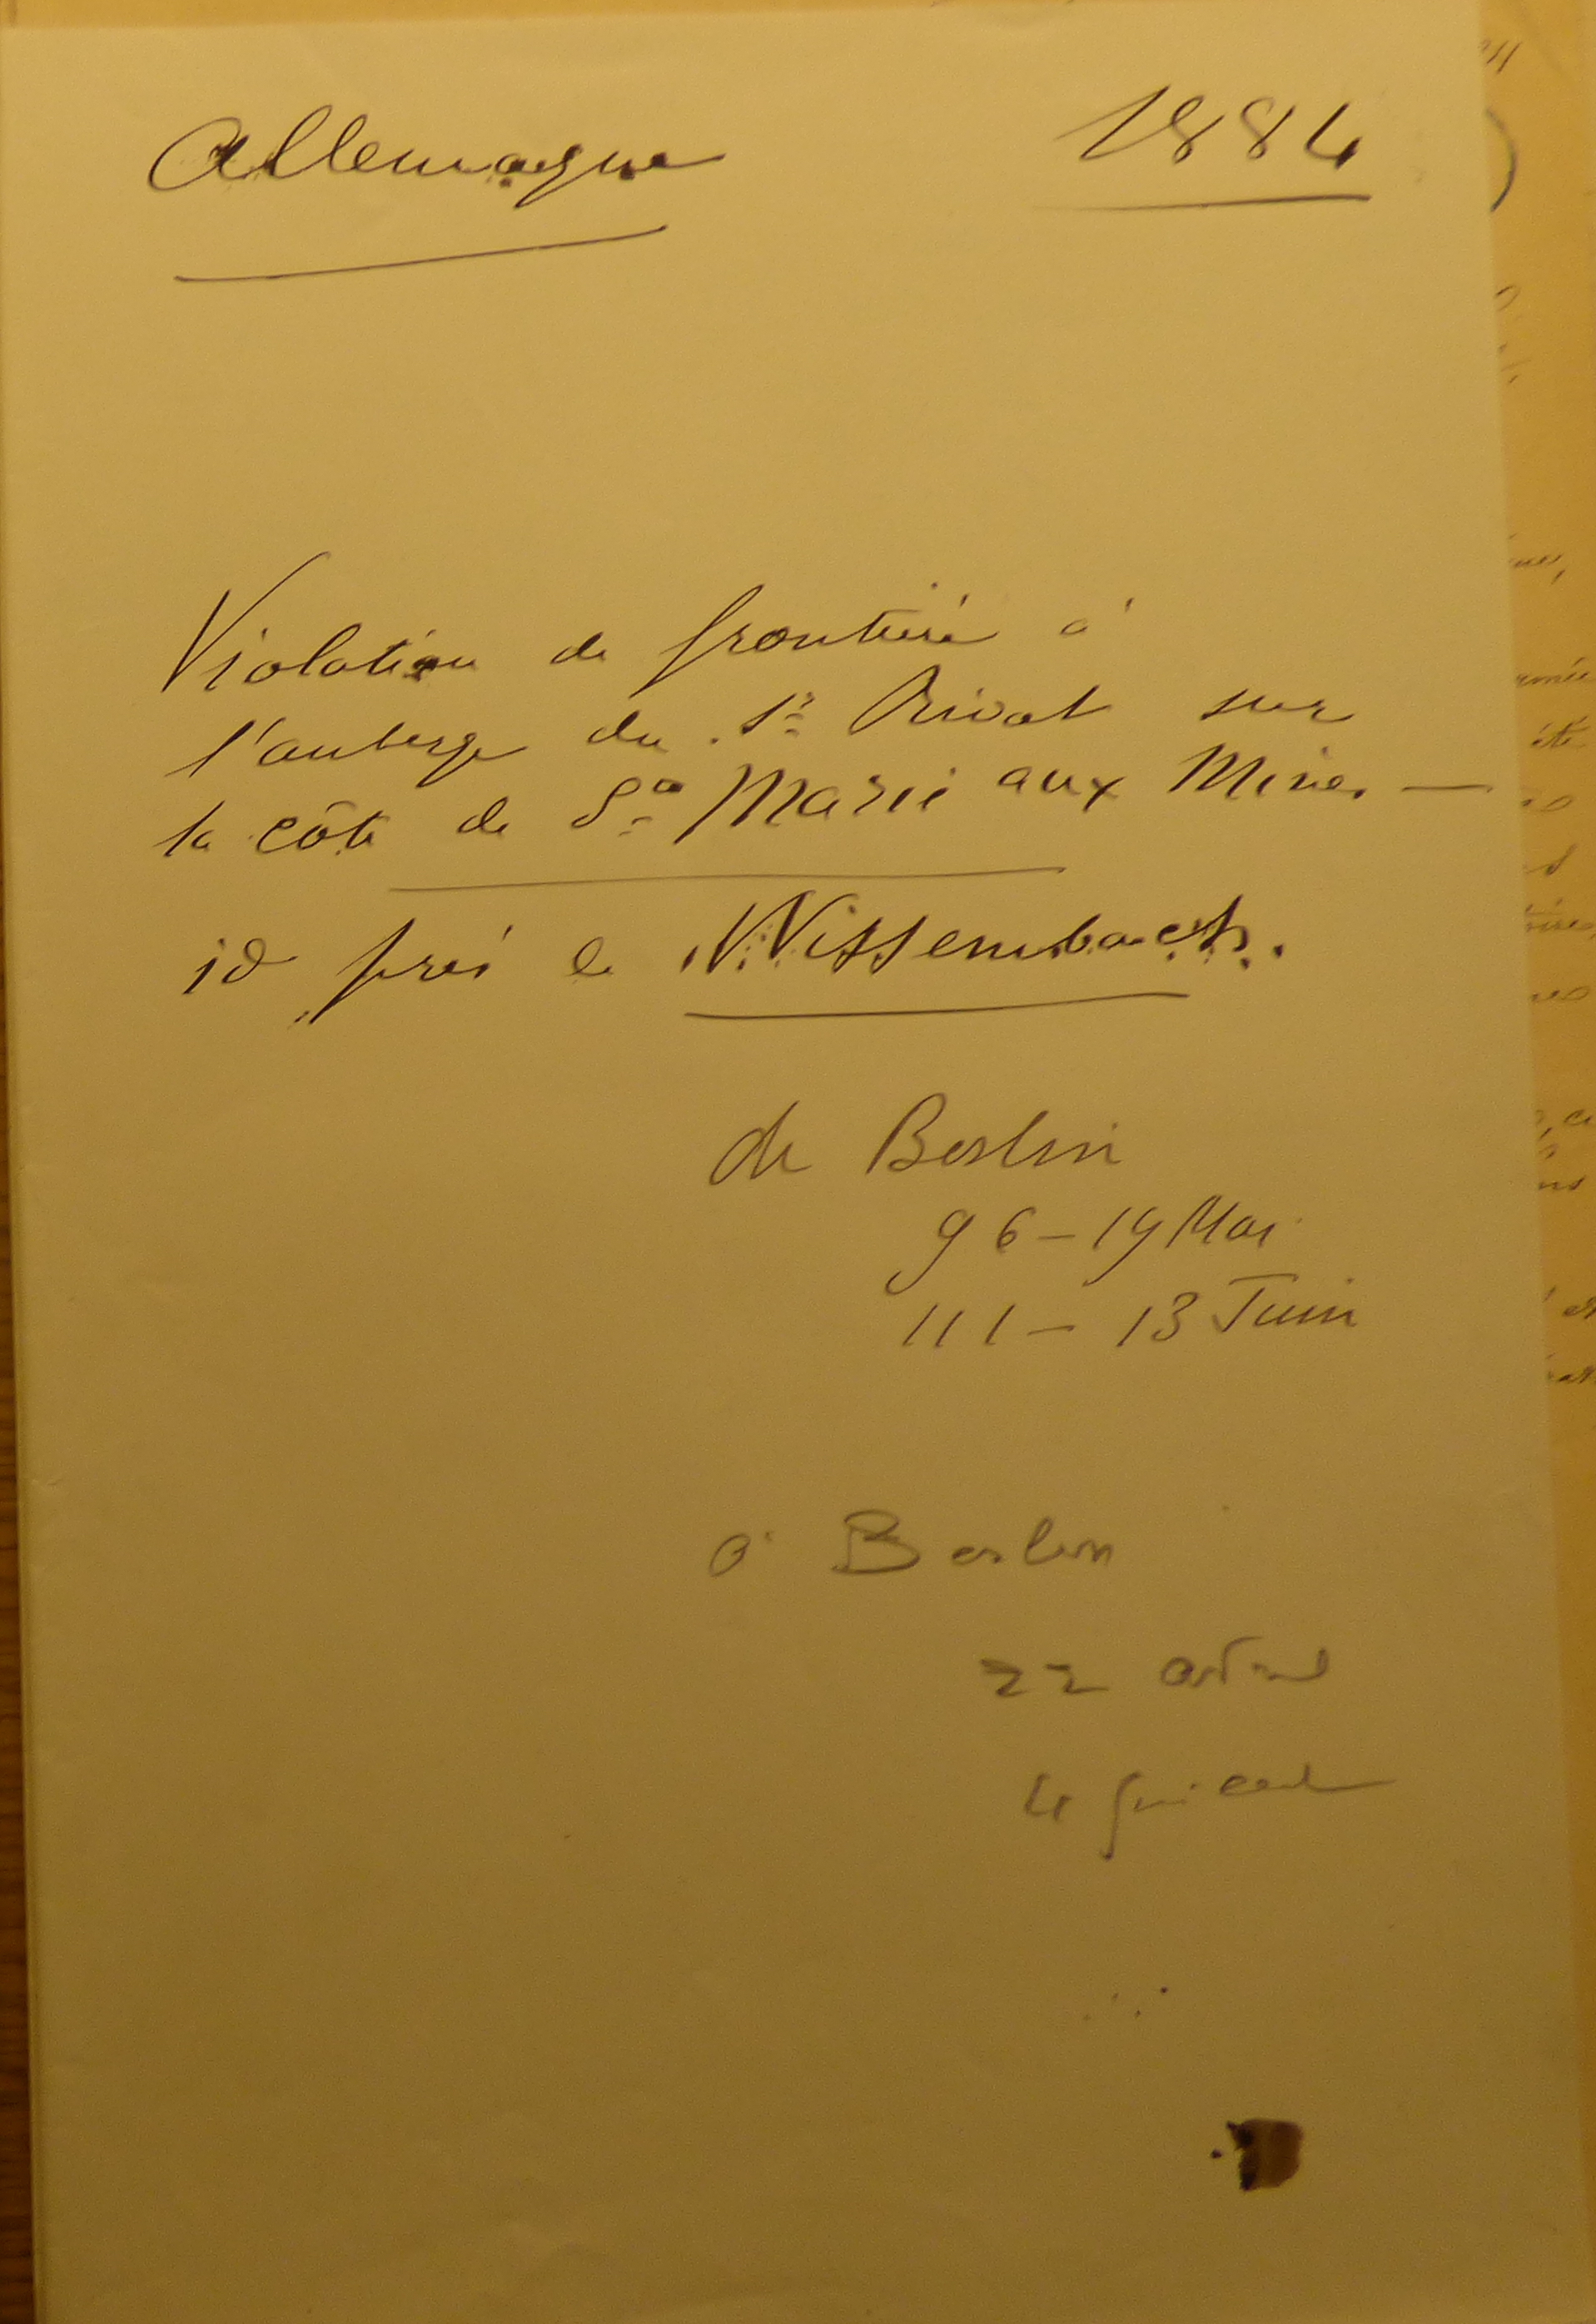 Allemagne 1884
Violation de frontière à
l'auberge du Sr Privat sur
la côte de Ste Marie aux Mines —
id près le Wissembach.
de Berlin
96 - 19 Mai
111 - 13 Juin
à Berlin
22 avril
4 juillet